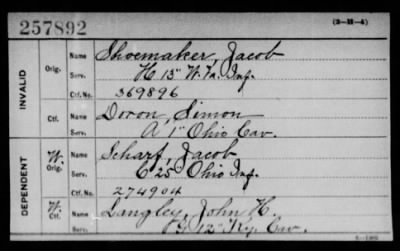 257892
(3-H-4)
INVALID
Orig.
Name Shoemaker, Jacob
Serv. H 15" W. Va. Inf.
Ctf. No. 369896
Ctf.
Name Doron, Simon
Serv. A 1" Ohio Cav.
DEPENDENT
W. Orig.
Name Scharf, Jacob
Serv. C 25" Ohio Inf.
Ctf. No. 274904
W. Ctf.
Name Langley, John H.
Serv. 12" Ky. Cav.